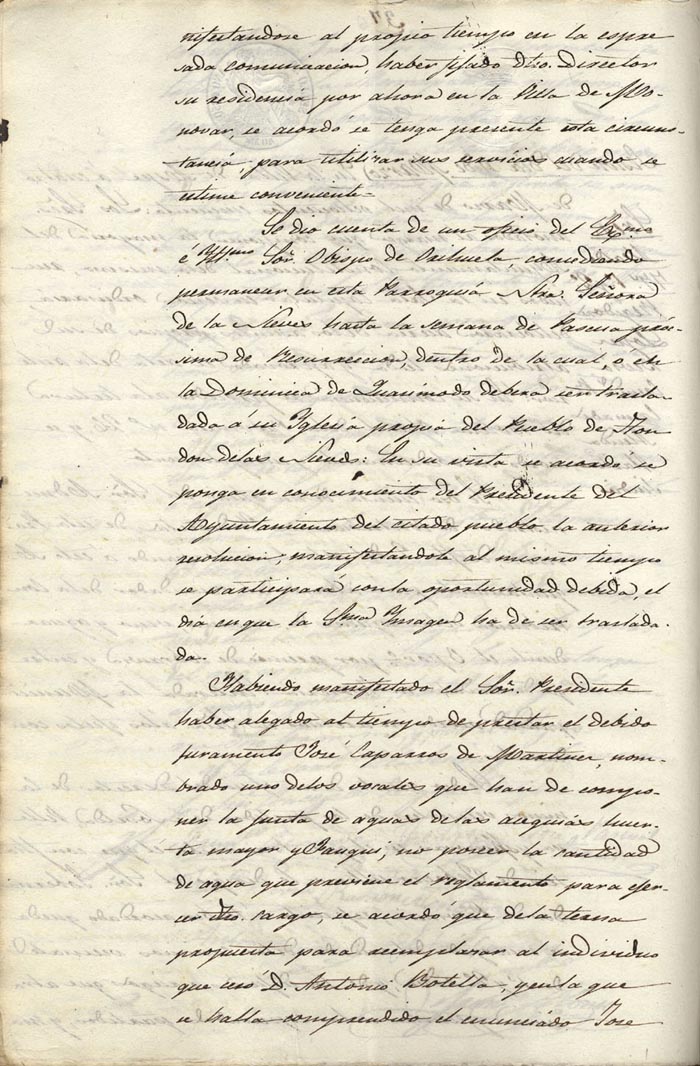 nifestandose al propio tiempo en la espre
sada comunicacion, haber fijado dho. Director
su residencia por ahora en la Villa de Mo-
novar, se acordó se tenga presente esta circuns-
tancia para utilizar sus servicios cuando se
estime conveniente.
Se dio cuenta de un oficio del Exmo
é Yllmo Sor. Obispo de Orihuela, concediendo
permanecer en esta Parroquia Ntra. Señora
de las Nieves hasta la semana de Pascua pró-
sima de Resurreccion, dentro de la cual, o en
la Dominica de Quasimodo deberá ser trasla-
dada á su Yglesia propia del Pueblo de Hon
don delas Nieves: En su vista se acordó se
ponga en conocimiento del Presidente del
Ayuntamiento del citado pueblo la anterior
resolucion; manifestandole al mismo tiempo
se participará con la oportunidad debida, el
dia en que la Sma Ymagen ha de ser traslada-
da.
Habiendo manifestado el Sor. Presidente
haber alegado al tiempo de prestar el debido
juramento José Caparros de Martinez, nom-
brado uno delos vocales que han de compo-
ner la junta de aguas delas acequias huer-
ta mayor y Fauqui, no poseer la cantidad
de agua que previene el reglamento para ejer-
cer dho. cargo, se acordó que dela terna
propuesta para reemplazar al individuo
que ceso D. Antonio Botella, y en la que
se halla comprendido el enunciado Jose